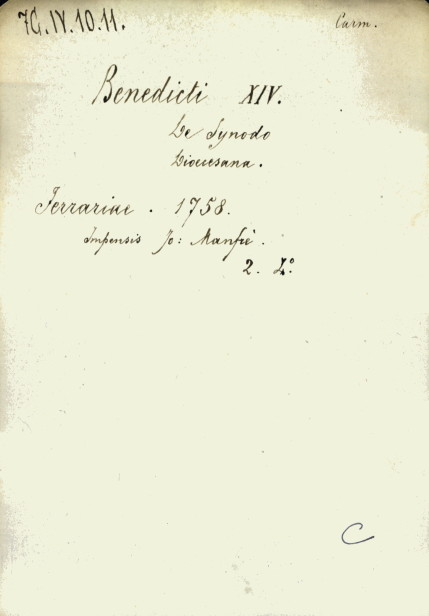 7G.IV.10.11.
Carm.
Benedicti XIV.
De Synodo
Dioecesana.
Ferrariae. 1758.
Impensis Jo: Manfrè.
2. 4°
C